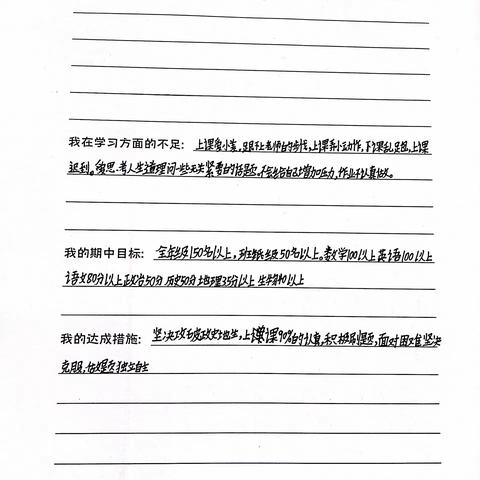 我在学习方面的不足：上课爱小差，跟不上老师的步伐，上课有小动作，下课乱跑，上课
迟到。爱思考人生道理问一些无关紧要的话题。不会给自己增加压力，作业不认真做。
我的期中目标：全年级150名以上，班级50名以上。数学100以上英语100以上
语文80分以上政治50分 历史50分 地理35分以上 生物40以上
我的达成措施：坚决攻破政史地生，上课课90%的认真，积极刷题，面对困难坚决
克服，独立自主